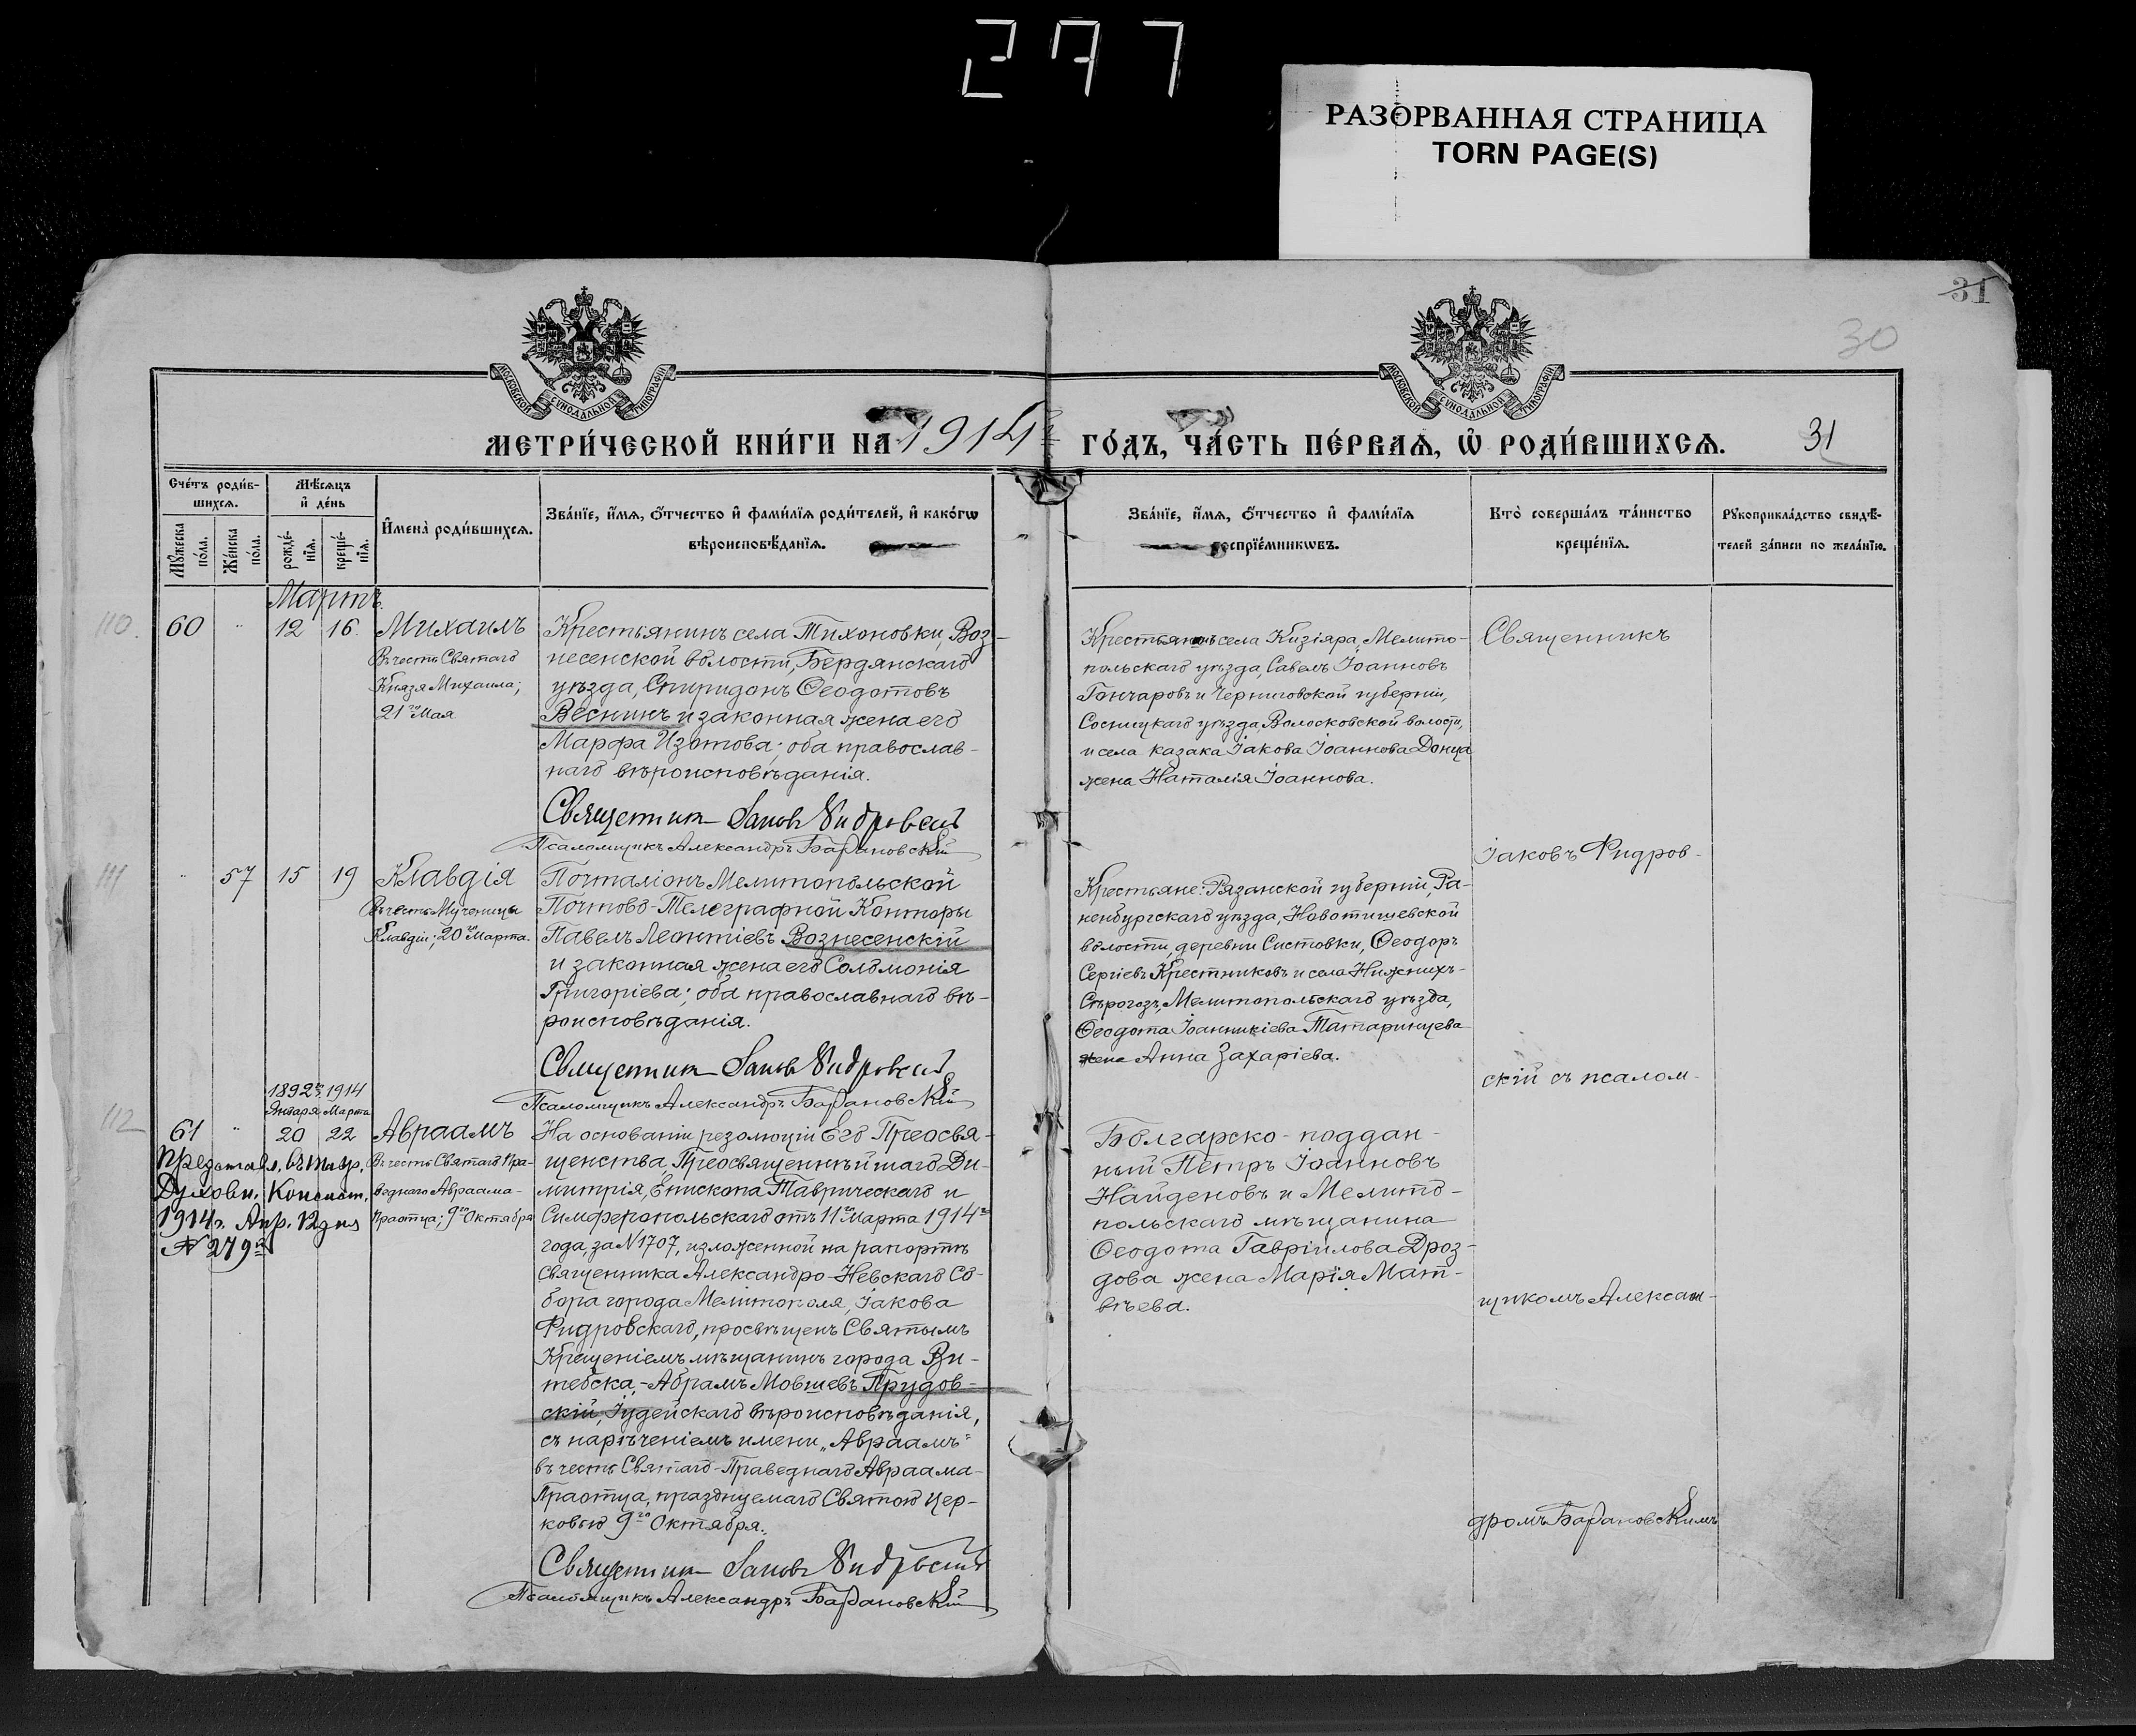 297
РАЗОРВАННАЯ СТРАНИЦА
TORN PAGE(S)
31
30
МОСКОВСКОЙ СѴНОДАЛЬНОЙ ТИПОГРАФІИ
МОСКОВСКОЙ СѴНОДАЛЬНОЙ ТИПОГРАФІИ
МЕТРИ́ЧЕСКОЙ КНИ́ГИ НА 1914й ГО́ДЪ, ЧА́СТЬ ПЕ́РВАѦ, Ѡ҆ РОДИ́ВШИХСѦ. 31
Сче́тъ роди́в-
шихсѧ.
Мꙋ́жеска по́ла.
Же́нска по́ла.
Мѣ́сѧцъ
и҆ де́нь
рожде́-
нїѧ.
креще́-
нїѧ.
И҆мена̀ роди́вшихсѧ.
Зва́нїе, и҆́мѧ, ѻ҆́тчество и҆ фами́лїѧ роди́телей, и҆ како́гѡ
вѣроисповѣ́данїѧ.
Зва́нїе, и҆́мѧ, ѻ҆́тчество и҆ фами́лїѧ
воспрїе́мникѡвъ.
Кто̀ соверша́лъ та́инство
креще́нїѧ.
Рꙋкоприкла́дство свидѣ́-
телей за́писи по жела́нїю.
Мартъ.
110. 60 " 12 16. Михаилъ
Въ честь Святаго
Князя Михаила;
21го Мая
Крестьянинъ села Тихоновки, Воз-
несенской волости, Бердянскаго
уѣзда, Спиридонъ Ѳеодотовъ
Веснинъ и законная жена его
Марфа Изотова; оба православ-
наго вѣроисповѣданія.
Священникъ Іаковъ Фидровскій
Псаломщикъ Александръ Барановскій
Крестьянинъ села Кизіяра, Мелито-
польскаго уѣзда, Савелъ Іоанновъ
Гончаровъ и Черниговской губерніи,
Сосницкаго уѣзда, Волосковской волости,
и села казака Іакова Іоаннова Донца
жена Наталія Іоаннова.
Священникъ
111 " 57 15 19 Клавдія
Въ честь Мученицы
Клавдіи; 20го Марта.
Почталіонъ Мелитопольской
Почтово-Телеграфной Конторы
Павелъ Леонтіевъ Вознесенскій
и законная жена его Соломонія
Григоріева; оба православнаго вѣ-
роисповѣданія.
Священникъ Іаковъ Фидровскій
Псаломщикъ Александръ Барановскій
Крестьяне: Рязанской губерніи, Ра-
ненбургскаго уѣзда, Новотишевской
волости, деревни Систовки, Ѳеодоръ
Сергіевъ Крестниковъ и села Нижнихъ-
Сѣрогозъ, Мелитопольскаго уѣзда,
Ѳеодота Іоанникіева Татаринцева
жена Анна Захаріева.
Іаковъ Фидров-
скій съ псалом-
1892г. 1914
Января Марта
112 61 " 20 22 Авраамъ
Въ честь Святаго Пра-
веднаго Авраама-
Праотца; 9го Октября
Представл. въ Тавр.
Духовн. Консист.
1914г. Апр. 12 дня
№ 279й
На основаніи резолюціи Его Преосвя-
щенства, Преосвященнѣйшаго Ди-
митрія, Епископа Таврическаго и
Симферопольскаго отъ 11го Марта 1914го
года, за №1707, изложенной на рапортѣ
священника Александро-Невскаго Со-
бора города Мелитополя, Іакова
Фидровскаго, просвѣщенъ Святымъ
Крещеніемъ мѣщанинъ города Ви-
тебска, - Абрамъ Мовшевъ Прудов-
скій, Іудейскаго вѣроисповѣданія,
съ нарѣченіемъ имени „Авраамъ"
въ честь Святаго-Праведнаго Авраама-
Праотца, празднуемаго Святою Цер-
ковью 9го Октября.
Священникъ Іаковъ Фидровскій
Псаломщикъ Александръ Барановскій
Болгарско-поддан-
ный Петръ Іоанновъ
Найденовъ и Мелито-
польскаго мѣщанина
Ѳеодота Гавріилова Дроз-
дова жена Марія Мат-
вѣева.
щикомъ Алексан-
дромъ Барановскимъ